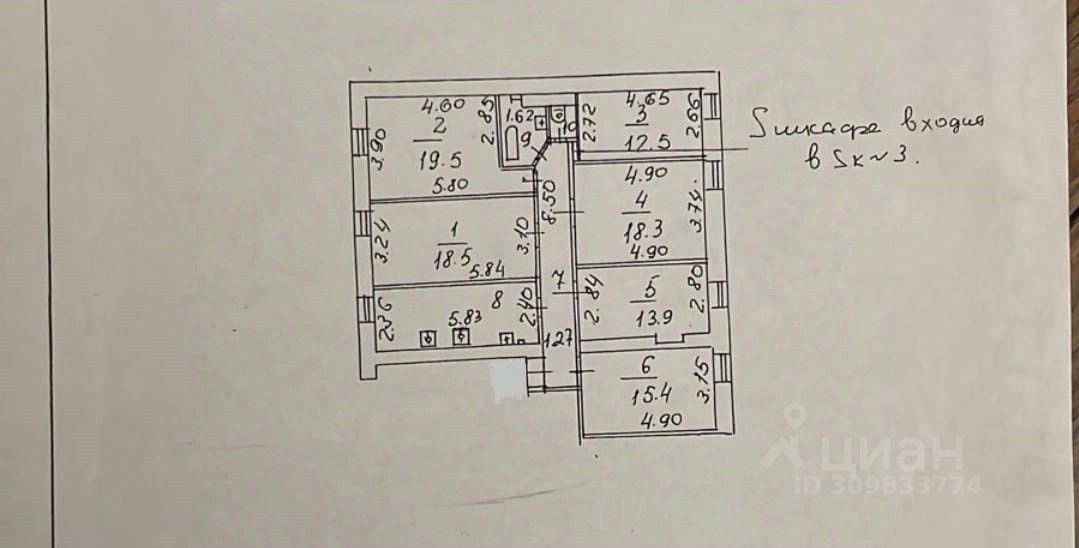 4.60
2
19.5
3.90
2.85
5.80
1.62
9
10
2.72
4.65
3
12.5
2.66
Sшкафа входит
в Sк~3.
4.90
4
18.3
4.90
3.74.
8.50
1
18.5
3.24
3.10
5.84
7
5
13.9
2.84
2.80
8
5.83
2.36
2.40
1.27
6
15.4
4.90
3.15
циан
ID 309833774